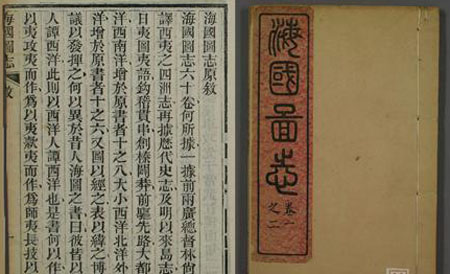 海國圖志原敘
海國圖志六十卷何所據一據前兩廣總督林尚
譯西夷之四洲志再據歷代史志及明以來島志
日夷圖夷語鉤稽貫串創榛闢莽前驅先路大都
洋西南洋增於原書者十之八大小西洋北洋外
洋增於原書者十之六又圖以經之表以緯之博
議以發揮之何以異於昔人海圖之書曰彼皆以
人譚西洋此則以西洋人譚西洋也是書何以作
以夷攻夷而作為以夷款夷而作為師夷長技以
海國圖志 敘 一
海國圖志
卷一
之二